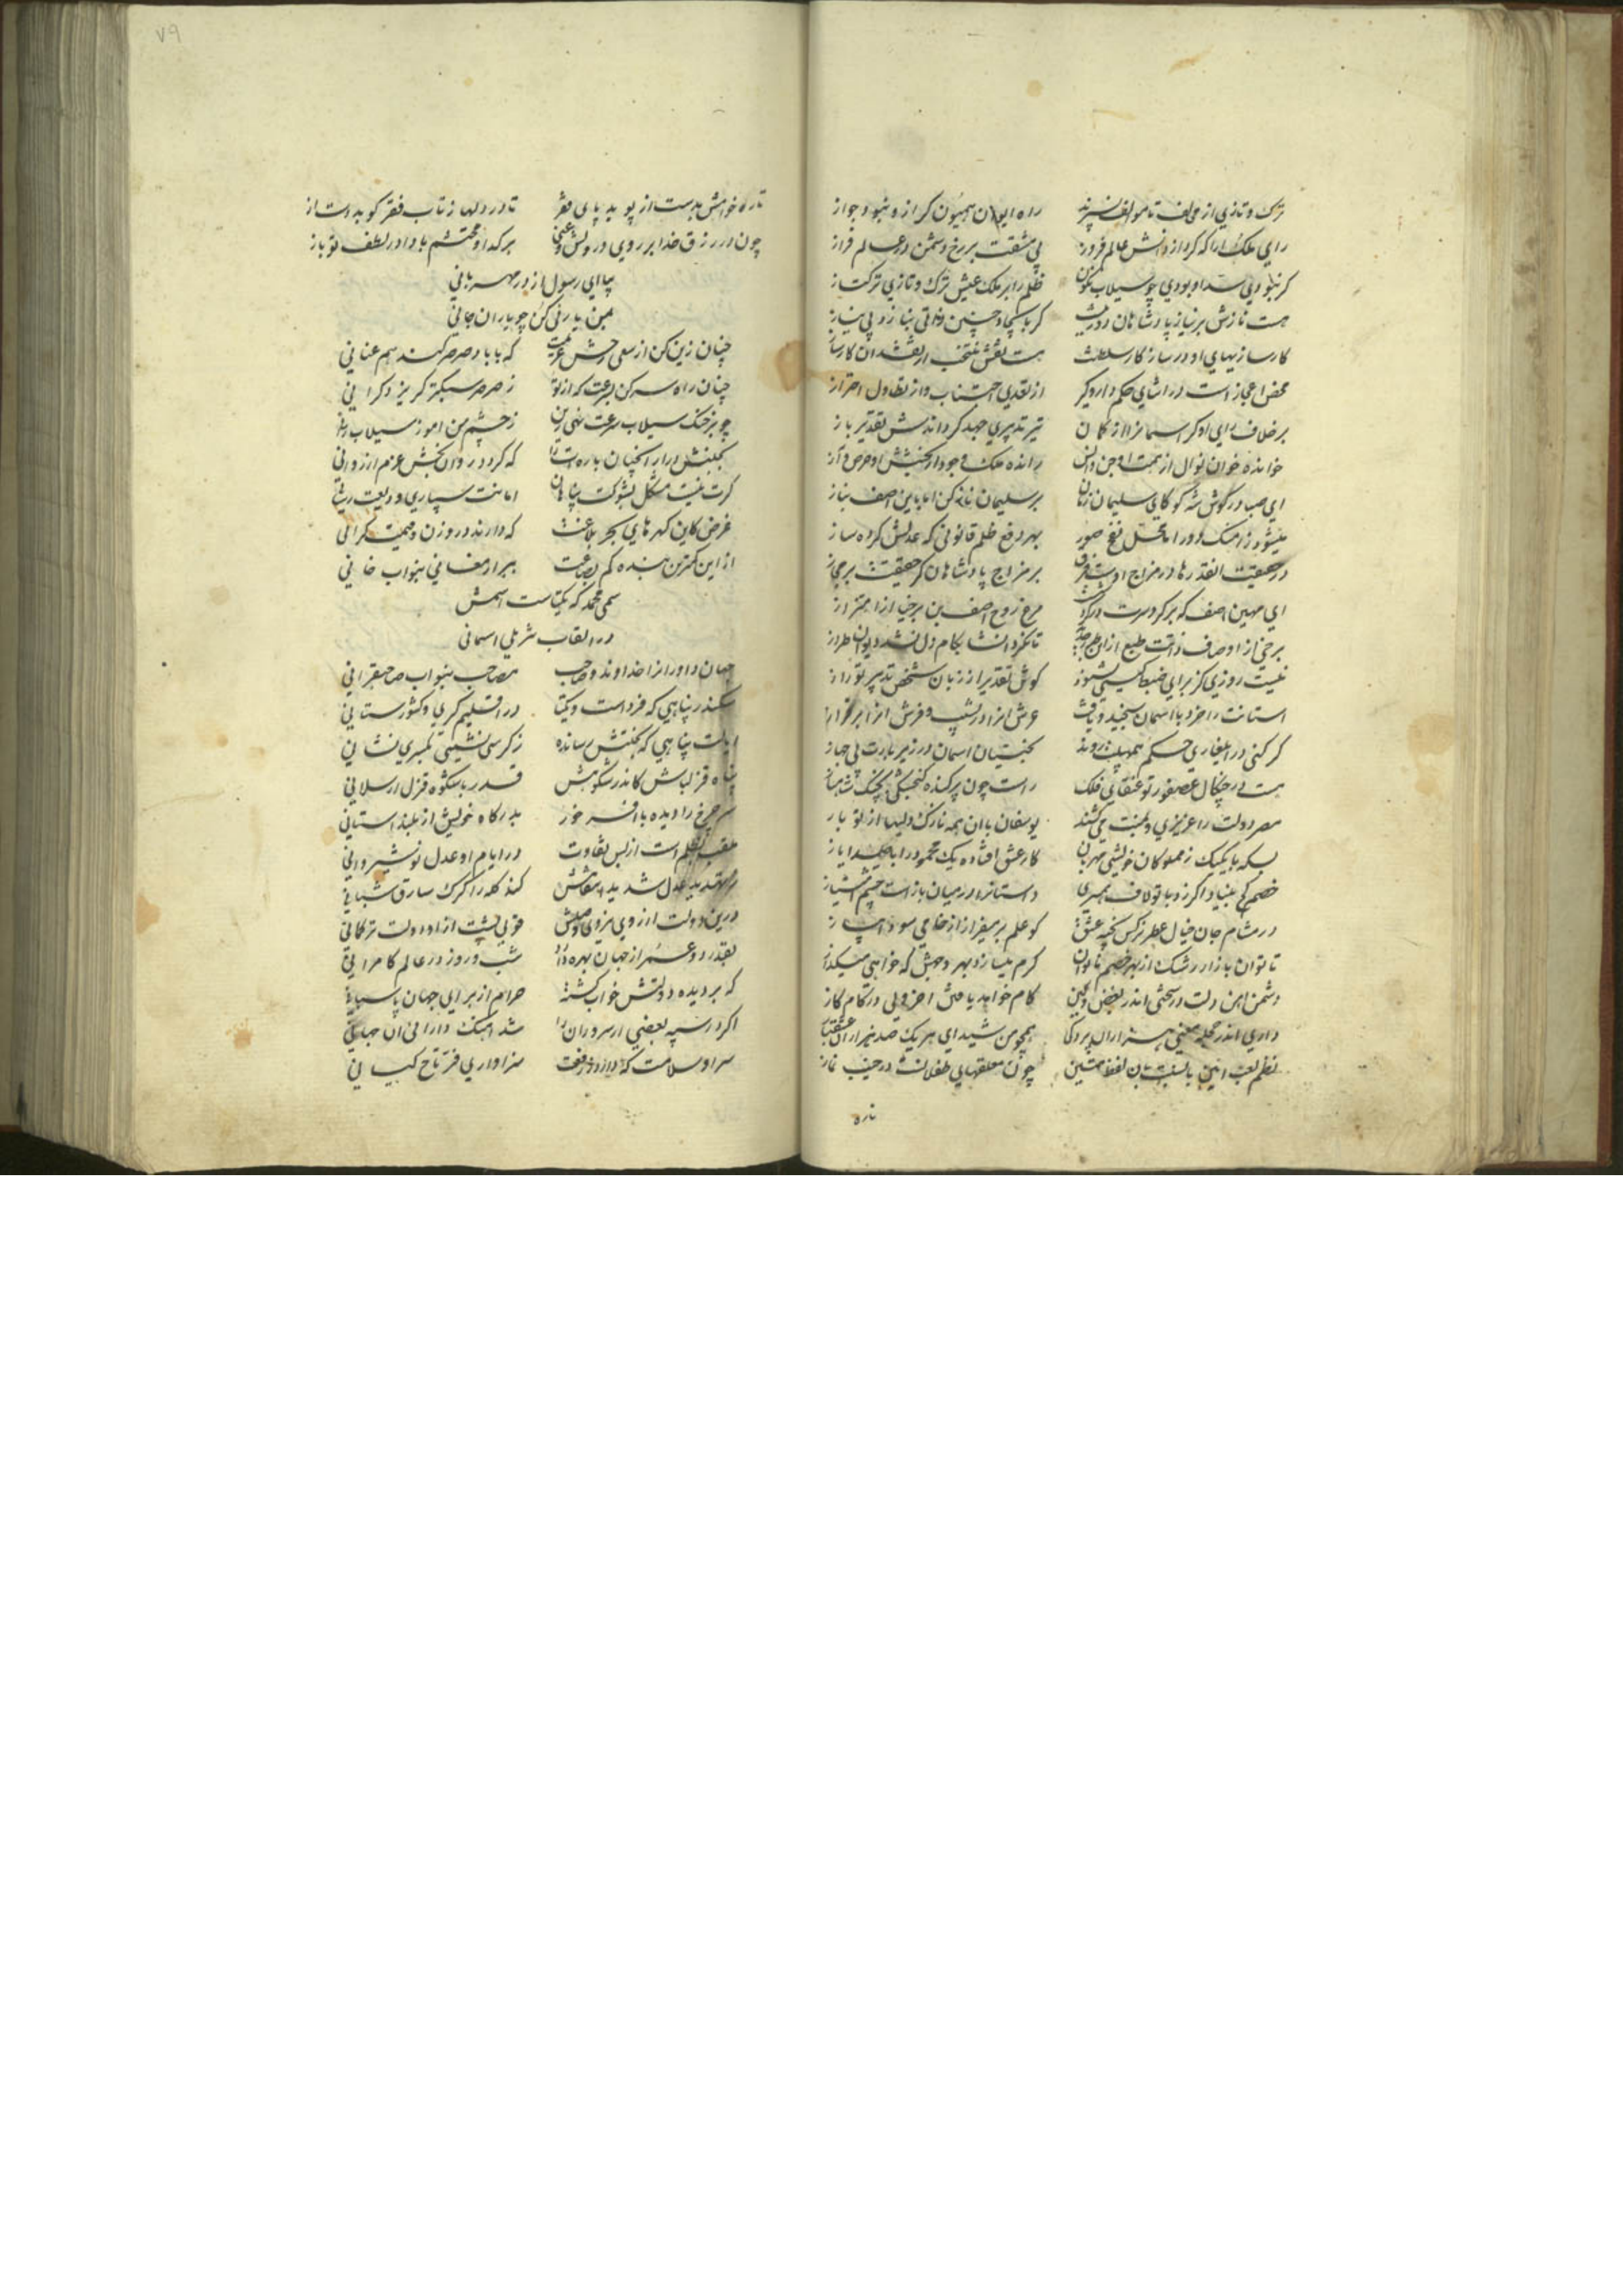 ترک و تازی از مخالف تا موالف نسپرند راه ایوان همیون کر ازو نبود جواز
رای ملک ارا که کرد از دانش عالم فروز بی مشقت بر رخ دشمن در عالم فراز
کر نبودی سد او بودی چو سیلاب نکون ظلم را بر ملک عیش ترک و تازی ترکتاز
هست نازش بر نیاز پادشاهان دور نیست کر با چنین ذاتی بنازد بی نیاز
کارسازیهای او در ساز کار سلطنت هست نقش منتخب از نقشدان کارساز
محض اعجاز است در اثنای حکم دار و کیر از تعدی اجتناب و از تطاول احتراز
بر خلاف رای او کر اسمانرا از کمان تیر تدبیری جهد کرداندش تقدیر باز
خوانده خوان نوال از همت او جن و انس رانده ملک وجود از بخشش او حرص و از
ای صبا در گوش شه کو کای سلیمان زمان بر سلیمان ناز کن اما باین اصف بناز
میشود ز اهنک دور اما محل نفخ صور بهر دفع ظلم قانونی که عدلش کرده ساز
در حقیقت انقدرها در مزاج اوست فرق بر مزاج پادشاهان کز حقیقت بر مجاز
ای مهین اصف که بر کرد سرت در کردش مرغ روح اصف بن برخیا از اهتزاز
برخی از اوصاف ذاتت طبع از این طرح تا نکرد انشا بکام دل نشد دیوان طراز
نیست روزی کز برای ضبط کیتی نشنود کوش تقدیر از زبان شخص تدبیر تو راز
استانت را خرد با اسمان سنجید و یافت عرش انرا در نشیب و فرش انرا بر فراز
کر کنی در ایلغاری حکم همپایت روند بختیان اسمان در زیر بارت بی جهاز
هست در چنکال عصفور تو عنقای فلک راست چون پرکنده کنجشکی بچنک شاهباز
مصر دولت را عزیزی و بمنت میکشند یوسفان با ان همه نازک دلیها از تو ناز
بسکه با یک یک ز مملوکان خویشی مهربان کار عشق افتاده یک محمود را با صد ایاز
خصم کج بنیاد اگر زد با تو لاف همسری راستانرا در میان باز است چشم امتیاز
در مشام جان خیال عطر نرکس پخته عشق کو علم بر میفراز از خامی سودا پیاز
تا توان بازار رشک از بهر خصم ناتوان کرم میسازد بهر وجهش که خواهی میکداز
دشمن اهن دلت در سختی اندر بغض و کین کام خواهد یافت اخر ولی در کام کاز
داری اندر حجله معنی هزاران پردکی همچو من شیدای هر یک صد هزاران عشقباز
نظم لعب ایین بالنسبت بان لفظ متین چون معلقهای طفلانست در جنب نماز
تا ره
۷۹
تا ره خواهش بدست از پوید پای فقر تا در دلها ز تاب فقر کوبد دست از
چون در رزق خدا بر روی درویش و غنی بر کدا و محتشم بادا در لطف تو باز
بیا ای رسول از در مهربانی
بمن یاریی کن چو یاران جانی
چنان زین کن از سعی رخش عزیمت که با باد صرصر کند هم عنانی
چنان راه سر کن بسرعت که از تو ز صرصر سبکتر کریزد کرانی
چو بر خنک سیلاب سرعت نهی زین ز چشم من اموز سیلاب رانی
بجنبش درار انچنان باره ات را که کردد روان بخش عزم از روانی
کرت نیست مشکل بشوکت پناهان امانت سپاری ودیعت رسانی
غرض کاین کهرهای بحر بلاغت که دارند در وزن و قیمت کرانی
از این کمترین بنده کم بضاعت ببر ارمغانی بنواب خانی
سمی محمد که یکتاست اسمش
در القاب تنزیلی اسمانی
جهان داورانرا خداوند و صاحب مصاحب بنواب صاحبقرانی
سکندر پناهی که فرد است و یکتا در اقلیم کیری و کشورستانی
ایالت پناهی که بختش رسانده ز کرسی نشینی بکسری نشانی
پناه قزلباش کاندر شکوهش قدر با شکوه قزل ارسلانی
سر چرخ را دیده با افسر خور بدرکاه خویش از بلند استانی
ملقب بظلم است از بس تفاوت در ایام او عدل نوشیروانی
بتهدید عدل شدید انتقامش کند کله را کرک سارق شبانی
درین دولت از روی نیروی بختش قوی پشت از او دولت ترکمانی
بقدر دو عمر از جهان بهره دارد شب و روز در عالم کامرانی
که بر دیده دولتش خواب کشته حرام از برای جهان پاسبانی
اکر در سپه بعضی از سروران را شد اهنک دارائی ان جهانی
سر او سلامت که دارد ز رفعت سزاواری فر تاج کیانی